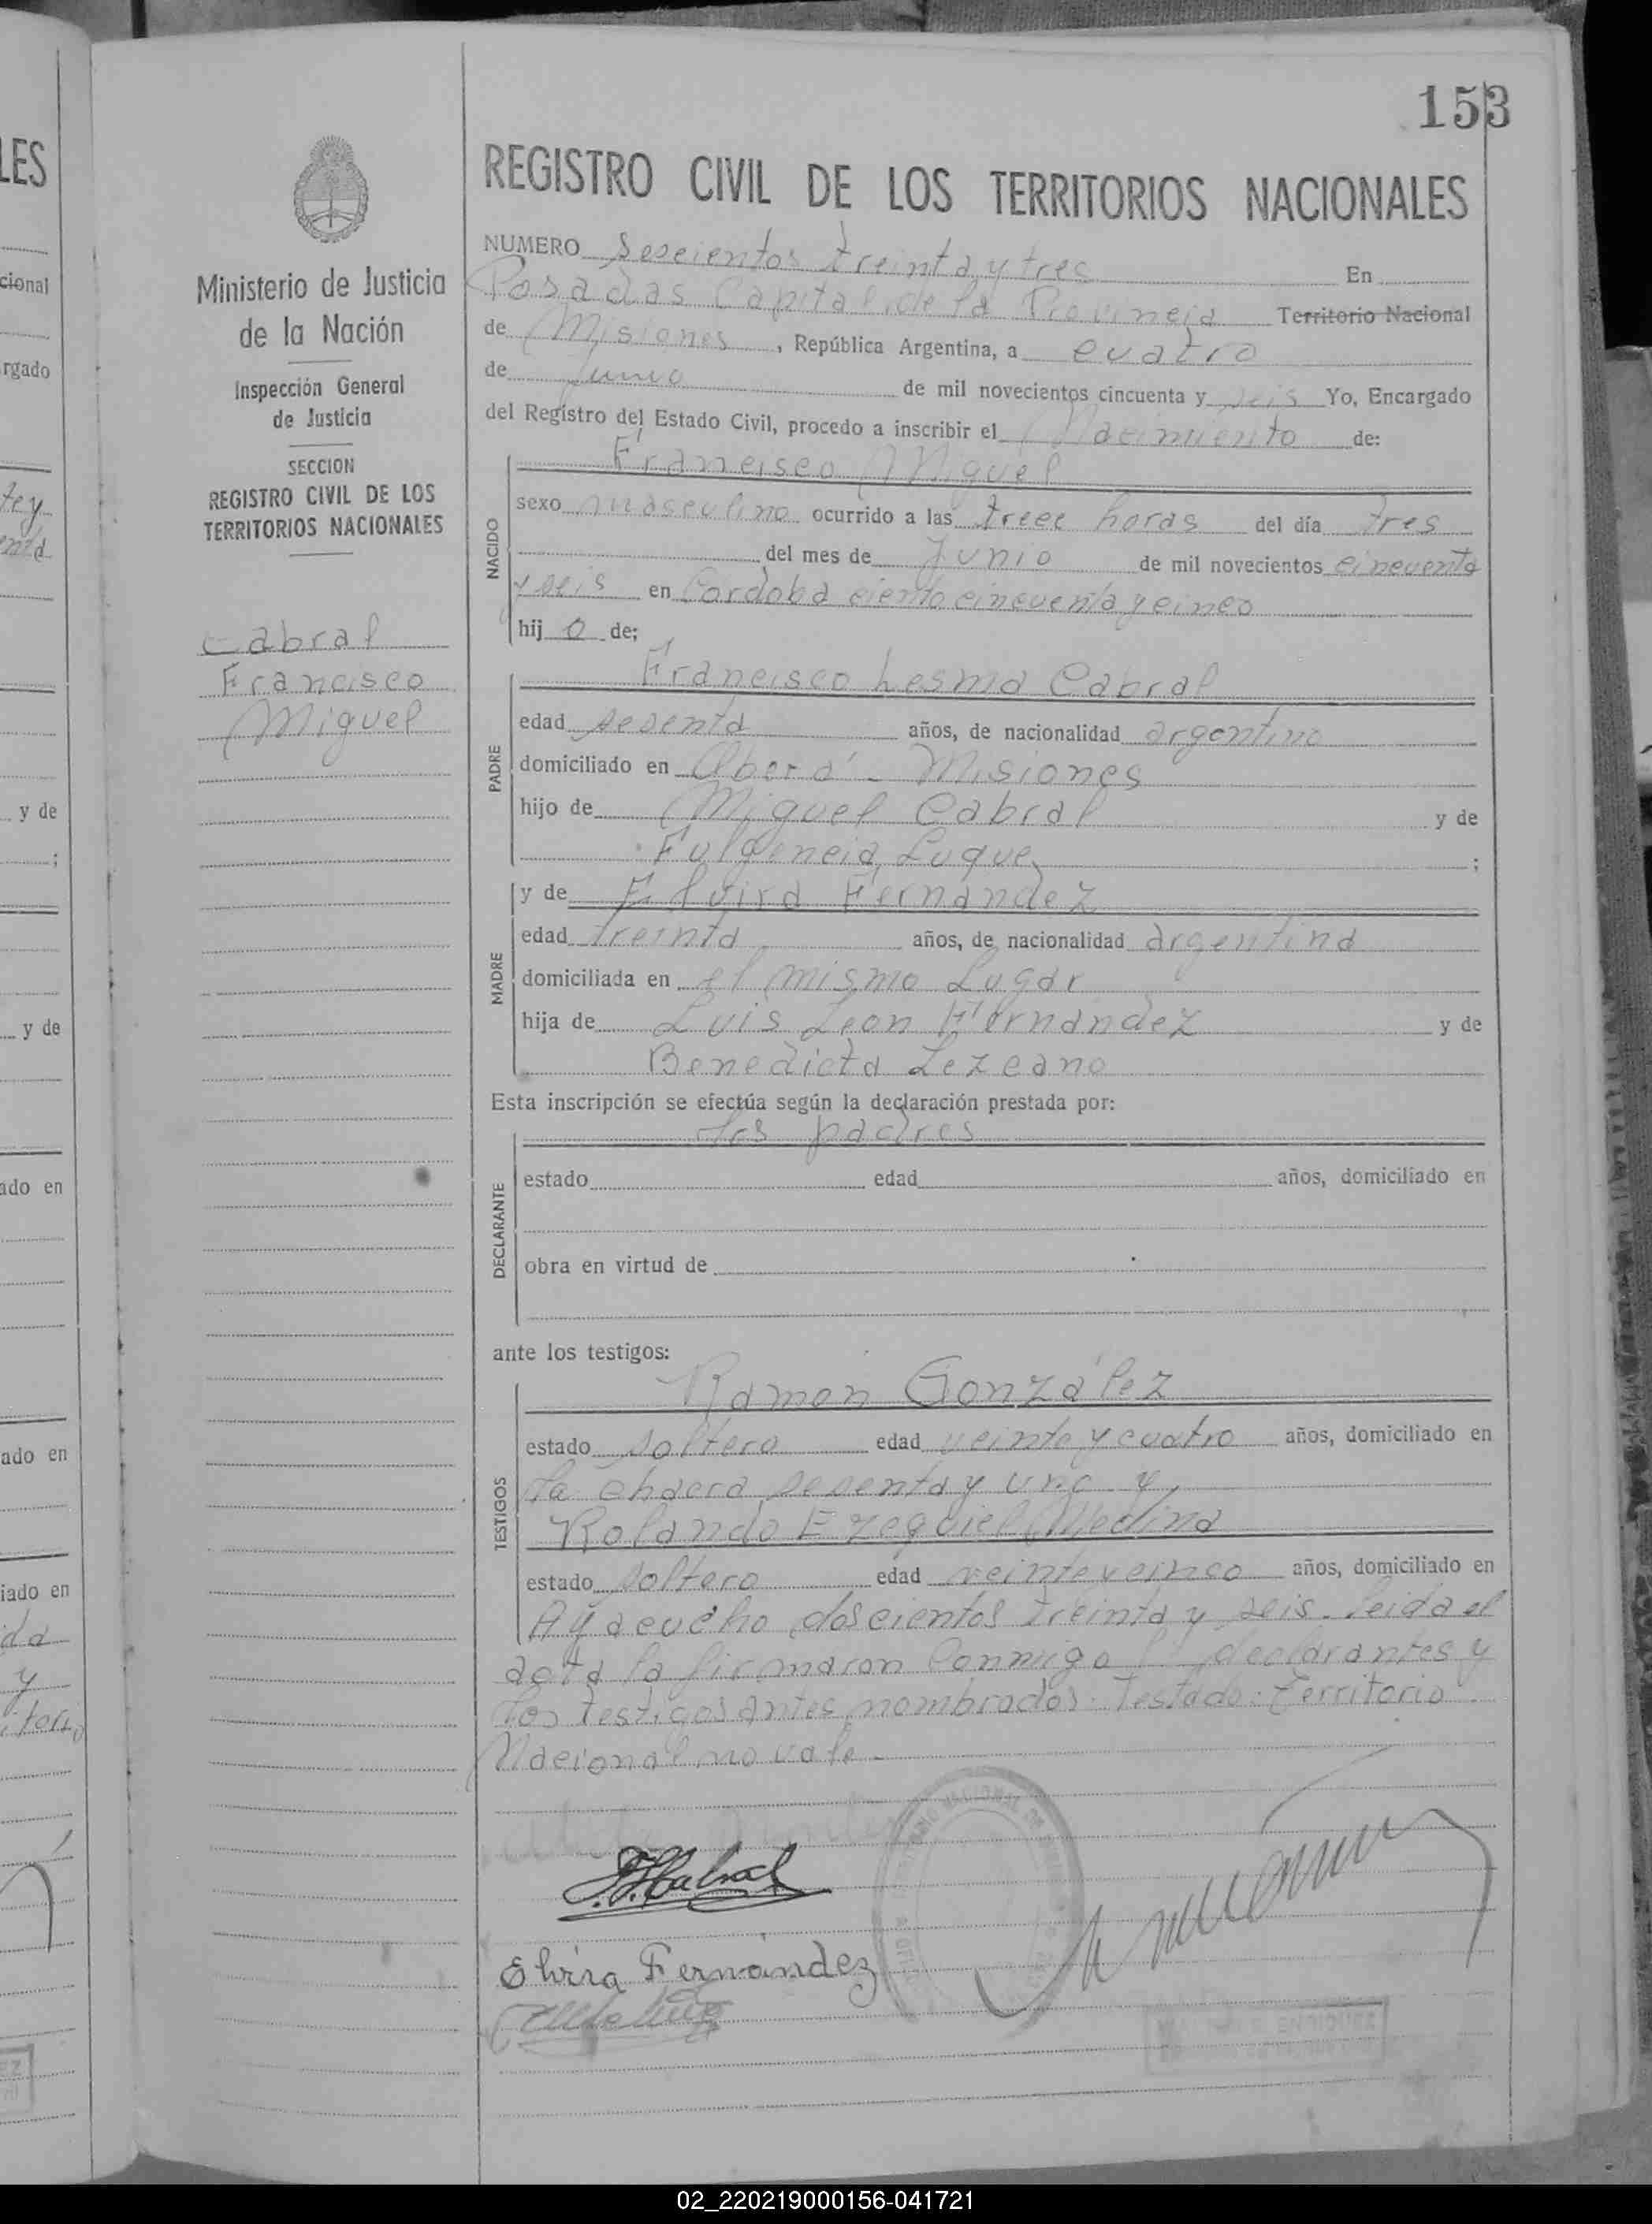 153
REGISTRO CIVIL DE LOS TERRITORIOS NACIONALES
Ministerio de Justicia
de la Nación
Inspección General
de Justicia
SECCION
REGISTRO CIVIL DE LOS
TERRITORIOS NACIONALES
Cabral
Francisco
Miguel
NUMERO Seseientos treinta y tres En
Posadas Capital de la Provincia Territorio Nacional
de Misiones, República Argentina, a cuatro
de Junio de mil novecientos cincuenta y seis Yo, Encargado
del Registro del Estado Civil, procedo a inscribir el Nacimiento de:
NACIDO
Francisco Miguel
sexo masculino ocurrido a las trece horas del día tres
del mes de Junio de mil novecientos cincuenta
y seis en Cordoba ciento cincuenta y cinco
hij o de;
PADRE
Francisco Lesma Cabral
edad sesenta años, de nacionalidad argentino
domiciliado en Oberá - Misiones
hijo de Miguel Cabral y de
Fulgencia Luque ;
MADRE
y de Elvira Fernandez
edad treinta años, de nacionalidad argentina
domiciliada en el mismo Lugar
hija de Luis Leon Fernandez y de
Benedicta Lezcano
Esta inscripción se efectúa según la declaración prestada por:
DECLARANTE
los padres
estado edad años, domiciliado en
obra en virtud de
ante los testigos:
TESTIGOS
Ramon González
estado soltero edad veinte y cuatro años, domiciliado en
la chacra sesenta y uno y
Rolando Ezequiel Medina
estado soltero edad veinte y cinco años, domiciliado en
Ayacucho doscientos treinta y seis. leida el
acta la firmaron conmigo declarantes y
los testigos antes nombrados. Testado: Territorio
Nacional no vale.-
Elvira Fernández
LES
cional
rgado
y de
;
y de
ado en
ado en
iado en
02_220219000156-041721